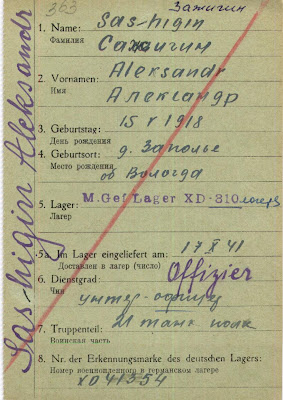 363
Зажигин
1. Name: Sas-higin
Фамилия Сажигин
2. Vornamen: Aleksandr
Имя Александр
3. Geburtstag: 15 V 1918
День рождения
4. Geburtsort: д. Заполье
Место рождения об Вологда
5. Lager: M.Gef Lager XD-310
Лагерь
5a. Im Lager eingeliefert am 17 X 41
Доставлен в лагерь (число)
6. Dienstgrad: Offizier
Чин унтер-офиц
7. Truppenteil: танк полк
Воинская часть
8. Nr. der Erkennungsmarke des deutschen Lagers:
Номер военнопленного в германском лагере
XD 41354
Sas-higin Aleksandr